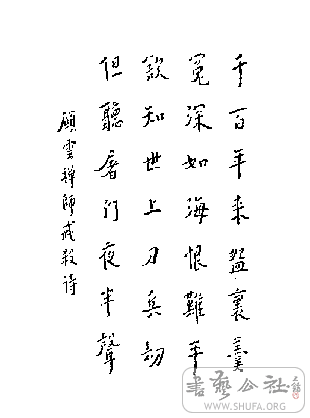 千百年来盌裏羹
冤深如海恨難平
欲知世上刀兵劫
但聽屠門夜半聲
願雲禪師戒殺詩
書藝公社
WWW.SHUFA.ORG